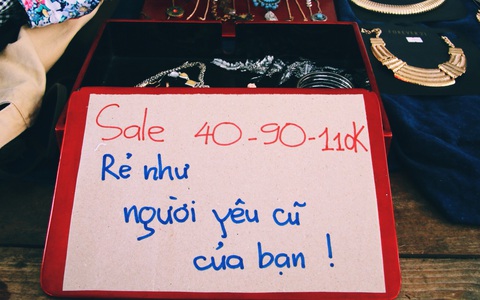 Sale 40-90-110K
Rẻ như
người yêu cũ
của bạn !